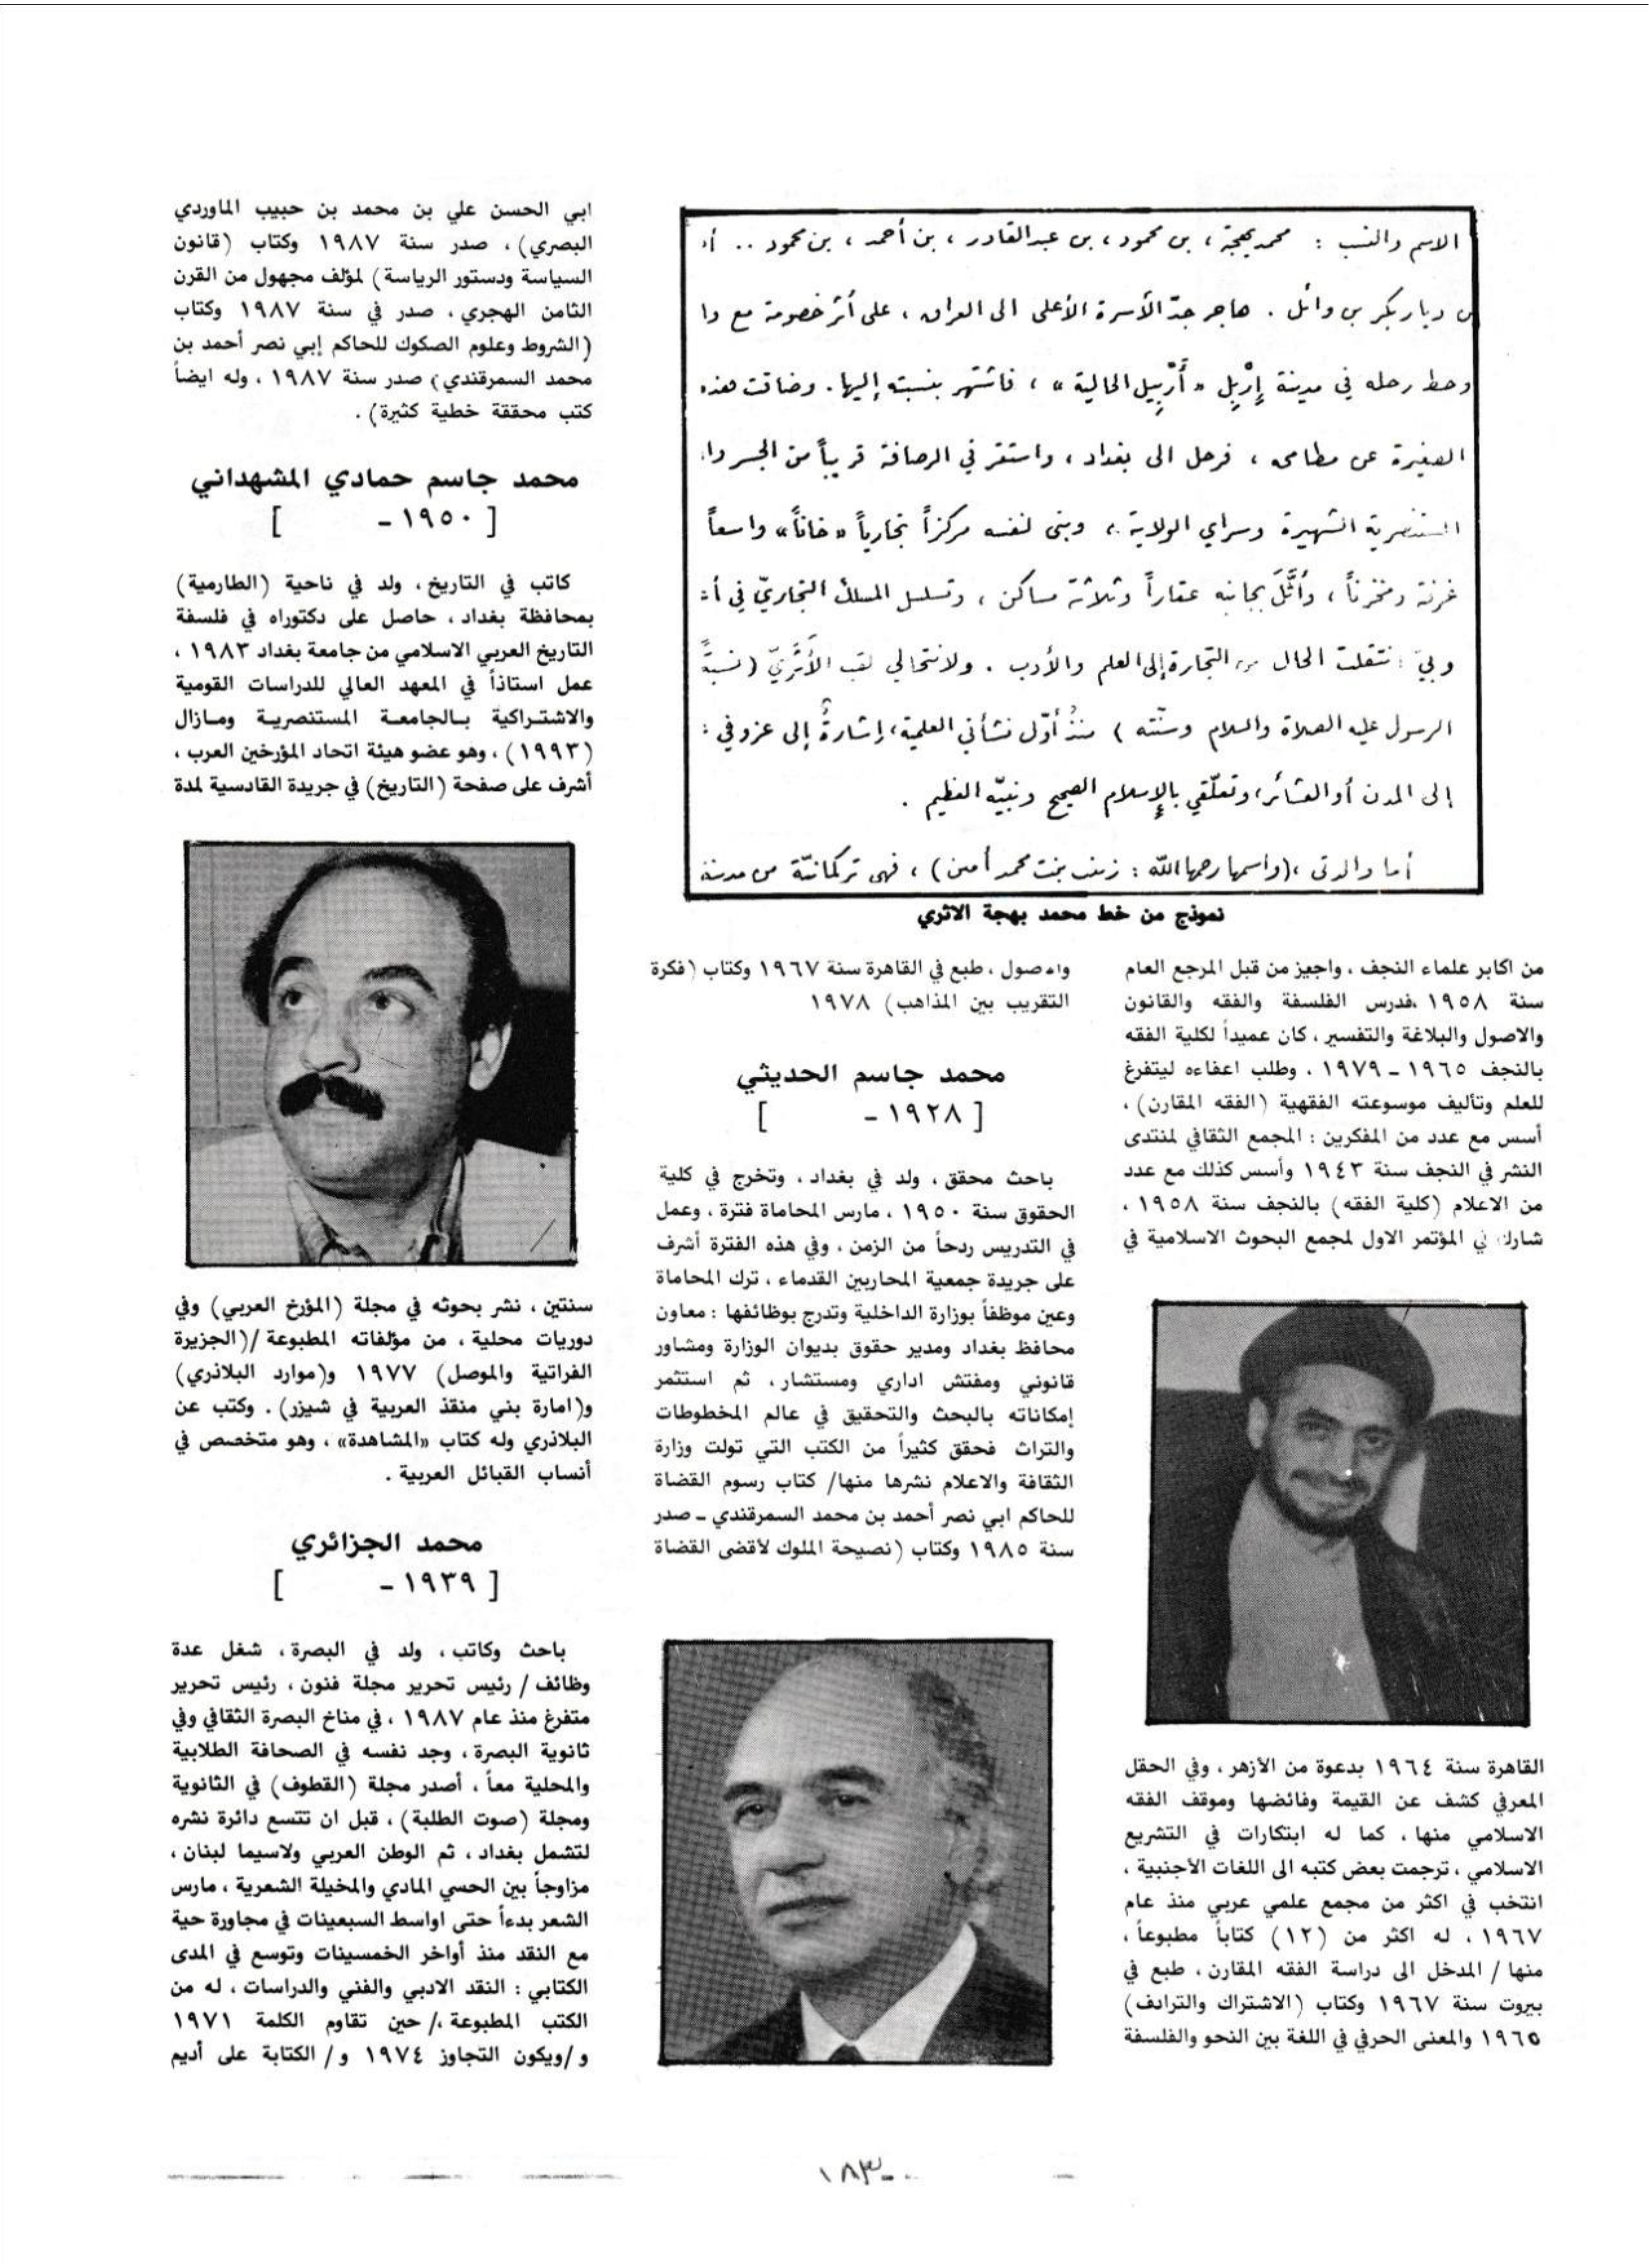 الاسم والنسب : محمد بهجة ، بن محمود ، بن عبدالقادر ، بن أحمد ، بن محمود ..
ديار بكر بن وائل . هاجر جدّ الأسرة الأعلى الى العراق ، على أثر خصومة مع وا
وحط رحله في مدينة إِرْبِل « أَرْبِيل الحالية » ، فاشتهر بنسبته إليها . وضاقت هذه
الصغيرة عن مطامحه ، فرحل الى بغداد ، واستقر في الرصافة قريباً من الجسر وا
المستنصرية الشهيرة وسراي الولاية ، وبنى لنفسه مركزاً تجارياً « خاناً » واسعاً
غرفة ومخزناً ، وأَثَّلَ بجانبه عقاراً وثلاثة مساكن ، وتسلسل المسلك التجاريّ في
وبيَ انتقلت الحال من التجارة إلى العلم والأدب . ولانتحالي لقب الأَثَريّ ( نسبةً
الرسول عليه الصلاة والسلام وسنّته ) منذُ أوّل نشأتي العلمية ، إشارةٌ إلى عزوفي
إلى المدن أو العشائر ، وتعلّقي بالإسلام الصحيح ونبيّه العظيم .
أما والدتي ، (واسمها رحمها الله : زينب بنت محمد أمين) ، فهي تركمانيّة من مدينة
نموذج من خط محمد بهجة الاثري
من اكابر علماء النجف ، واجيز من قبل المرجع العام
سنة ١٩٥٨ ،فدرس الفلسفة والفقه والقانون
والاصول والبلاغة والتفسير ، كان عميداً لكلية الفقه
بالنجف ١٩٦٥ ـ ١٩٧٩ ، وطلب اعفاءه ليتفرغ
للعلم وتأليف موسوعته الفقهية (الفقه المقارن) ،
أسس مع عدد من المفكرين : المجمع الثقافي لمنتدى
النشر في النجف سنة ١٩٤٣ وأسس كذلك مع عدد
من الاعلام (كلية الفقه) بالنجف سنة ١٩٥٨ ،
شارك في المؤتمر الاول لمجمع البحوث الاسلامية في
القاهرة سنة ١٩٦٤ بدعوة من الأزهر ، وفي الحقل
المعرفي كشف عن القيمة وفائضها وموقف الفقه
الاسلامي منها ، كما له ابتكارات في التشريع
الاسلامي ، ترجمت بعض كتبه الى اللغات الأجنبية ،
انتخب في اكثر من مجمع علمي عربي منذ عام
١٩٦٧ ، له اكثر من (١٢) كتاباً مطبوعاً ،
منها / المدخل الى دراسة الفقه المقارن ، طبع في
بيروت سنة ١٩٦٧ وكتاب (الاشتراك والترادف)
١٩٦٥ والمعنى الحرفي في اللغة بين النحو والفلسفة
والاصول ، طبع في القاهرة سنة ١٩٦٧ وكتاب (فكرة
التقريب بين المذاهب) ١٩٧٨
محمد جاسم الحديثي
[ ١٩٢٨ - ]
باحث محقق ، ولد في بغداد ، وتخرج في كلية
الحقوق سنة ١٩٥٠ ، مارس المحاماة فترة ، وعمل
في التدريس ردحاً من الزمن ، وفي هذه الفترة أشرف
على جريدة جمعية المحاربين القدماء ، ترك المحاماة
وعين موظفاً بوزارة الداخلية وتدرج بوظائفها : معاون
محافظ بغداد ومدير حقوق بديوان الوزارة ومشاور
قانوني ومفتش اداري ومستشار ، ثم استثمر
إمكاناته بالبحث والتحقيق في عالم المخطوطات
والتراث فحقق كثيراً من الكتب التي تولت وزارة
الثقافة والاعلام نشرها منها/ كتاب رسوم القضاة
للحاكم ابي نصر أحمد بن محمد السمرقندي ـ صدر
سنة ١٩٨٥ وكتاب (نصيحة الملوك لأقضى القضاة
ابي الحسن علي بن محمد بن حبيب الماوردي
البصري) ، صدر سنة ١٩٨٧ وكتاب (قانون
السياسة ودستور الرياسة) لمؤلف مجهول من القرن
الثامن الهجري ، صدر في سنة ١٩٨٧ وكتاب
(الشروط وعلوم الصكوك للحاكم إبي نصر أحمد بن
محمد السمرقندي) صدر سنة ١٩٨٧ ، وله ايضاً
كتب محققة خطية كثيرة) .
محمد جاسم حمادي المشهداني
[ ١٩٥٠ - ]
كاتب في التاريخ ، ولد في ناحية (الطارمية)
بمحافظة بغداد ، حاصل على دكتوراه في فلسفة
التاريخ العربي الاسلامي من جامعة بغداد ١٩٨٣ ،
عمل استاذاً في المعهد العالي للدراسات القومية
والاشتراكية بالجامعة المستنصرية ومازال
(١٩٩٣) ، وهو عضو هيئة اتحاد المؤرخين العرب ،
أشرف على صفحة (التاريخ) في جريدة القادسية لمدة
سنتين ، نشر بحوثه في مجلة (المؤرخ العربي) وفي
دوريات محلية ، من مؤلفاته المطبوعة /(الجزيرة
الفراتية والموصل) ١٩٧٧ و(موارد البلاذري)
و(امارة بني منقذ العربية في شيزر) . وكتب عن
البلاذري وله كتاب «المشاهدة» ، وهو متخصص في
أنساب القبائل العربية .
محمد الجزائري
[ ١٩٣٩ - ]
باحث وكاتب ، ولد في البصرة ، شغل عدة
وظائف / رئيس تحرير مجلة فنون ، رئيس تحرير
متفرغ منذ عام ١٩٨٧ ، في مناخ البصرة الثقافي وفي
ثانوية البصرة ، وجد نفسه في الصحافة الطلابية
والمحلية معاً ، أصدر مجلة (القطوف) في الثانوية
ومجلة (صوت الطلبة) ، قبل ان تتسع دائرة نشره
لتشمل بغداد ، ثم الوطن العربي ولاسيما لبنان ،
مزاوجاً بين الحسي المادي والمخيلة الشعرية ، مارس
الشعر بدءاً حتى اواسط السبعينات في مجاورة حية
مع النقد منذ أواخر الخمسينات وتوسع في المدى
الكتابي : النقد الادبي والفني والدراسات ، له من
الكتب المطبوعة ،/ حين تقاوم الكلمة ١٩٧١
و /ويكون التجاوز ١٩٧٤ و/ الكتابة على أديم
١٨٣